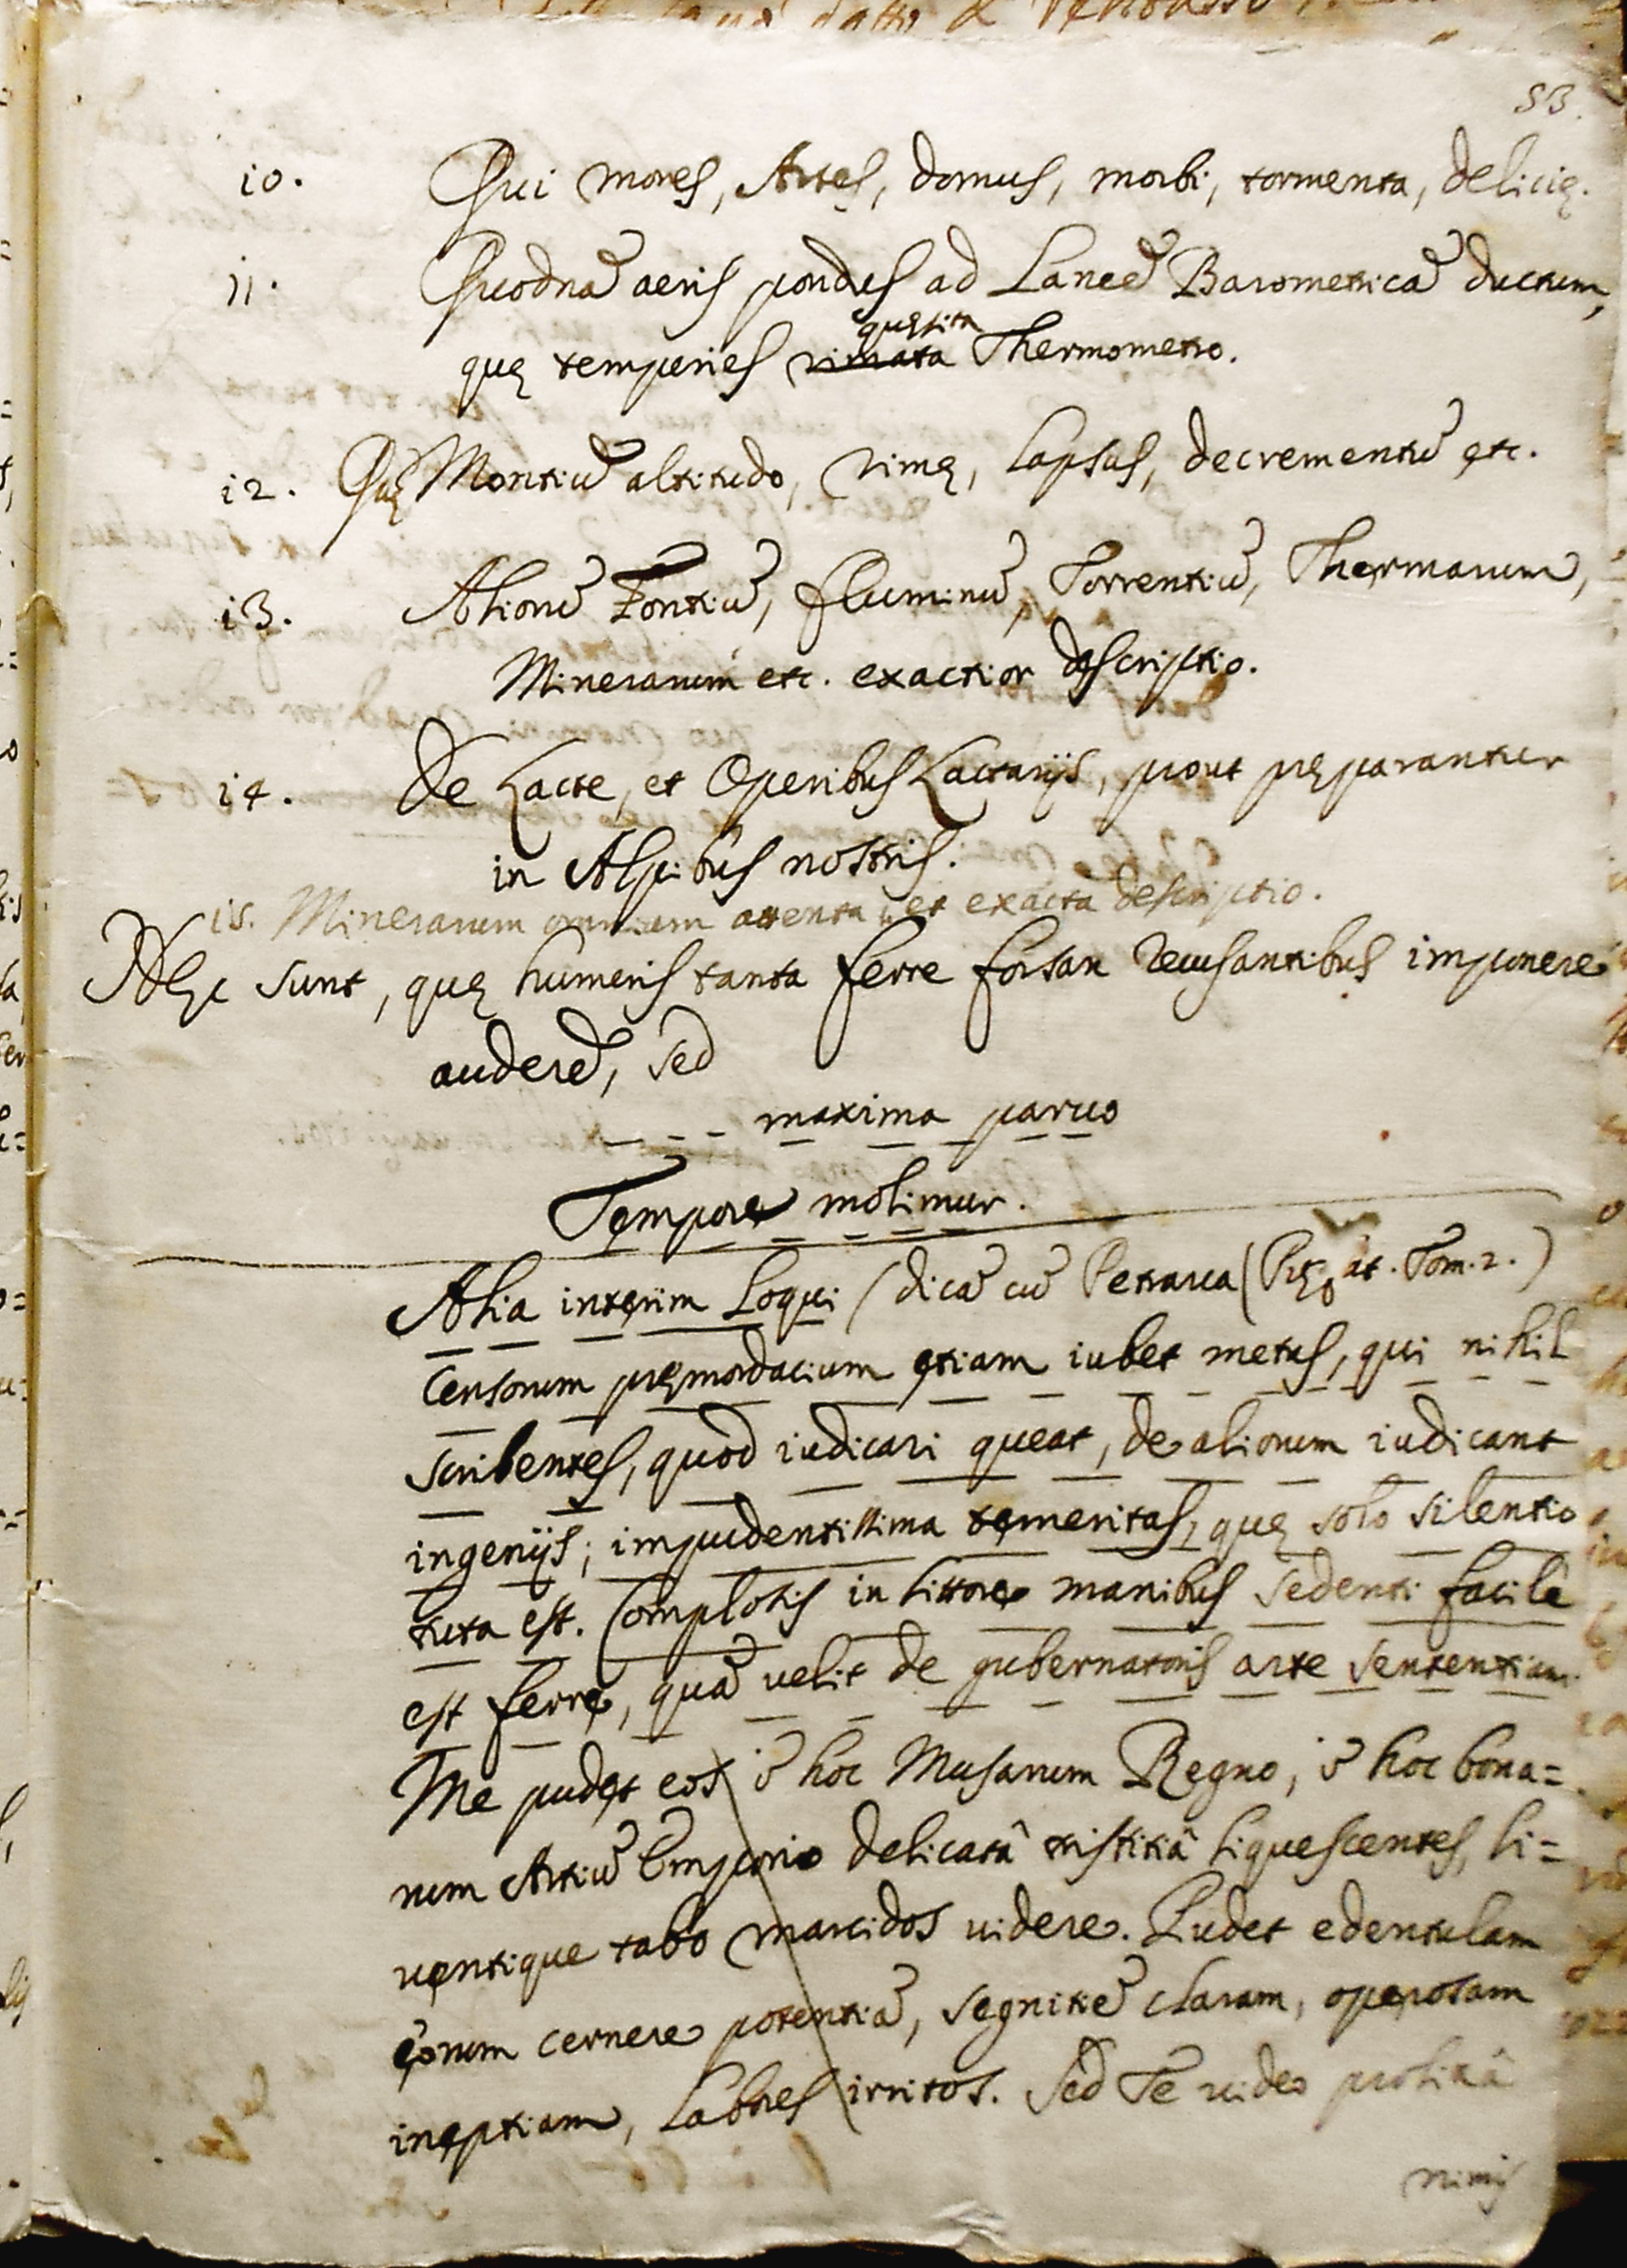 53.
10. Qui mores, Artes, domus, morbi, tormenta, delicię.
11. Quodnā aeris pondus ad Lancē Barometricā ductum,
quęsita
quę temperies rimata Thermometro.
12. Quę Montiū altitudo, rimę, lapsus, decrementū etc.
13. Alionē Fontiū, fluminū, Torrentiū, Thermarum,
Minerarum etc. exactior descriptio.
14. De Lacte, et Operibus Lactarijs, prout pręparantur
in Alpibus nostris.
15. Minerarum omnium attenta, et exacta descriptio.
Hęc sunt, quę humeris tanta ferre forsan recusantibus imponere
auderē, sed
_ _ _ maxima paruo
Tempore molimur.
Alia interim loqui (dicā cū Petrarca (Tom. 2.)
Censorum pręmordacium etiam iubet metus, qui nihil
scribentes, quod iudicari queat, de aliorum iudicant
ingenijs; impudentissima temeritas, quę solo silentio
tuta est. Complosis in littore manibus sedenti facilè
est ferre, quā velit de gubernatoris arte sententiam.
Me pudet eos ī hoc Musarum Regno, ī hoc bona=
rum Artiū Emporio delicatâ tristitiâ liquescentes, li=
uentique tabo marcidos uidere. Pudet edentulam
eorum cernere potentiā, segnitiē claram, operosam
ineptiam, labores irritos. Sed Te uideo prolixâ
nimis